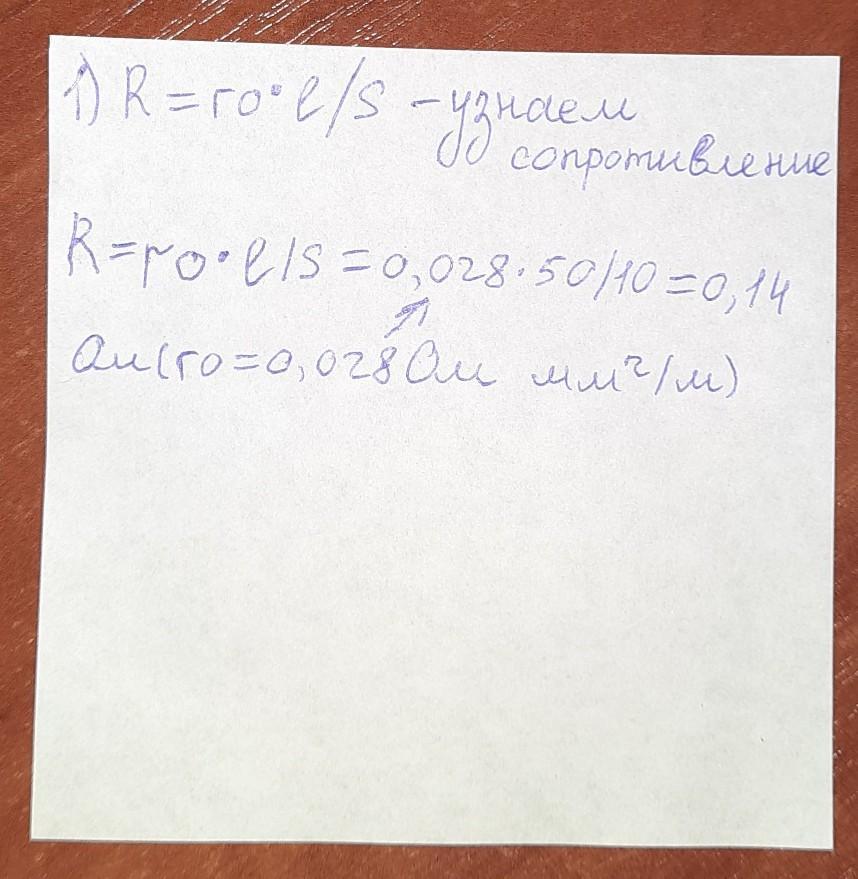 1) R = ro · l/S – узнаем
сопротивление
R = ro · l/S = 0,028 · 50/10 = 0,14
Ом (ro = 0,028 Ом мм²/м)